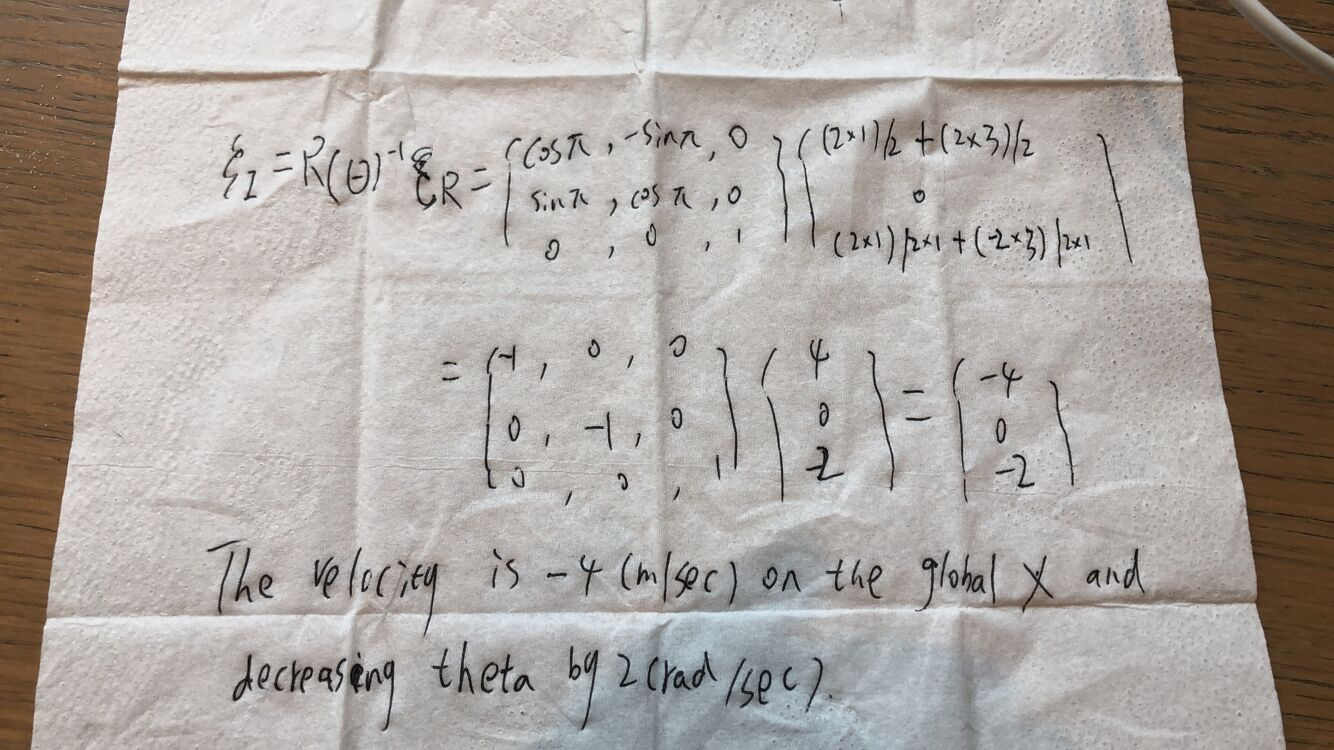 ξI = R(θ)⁻¹ ξR = [cosπ, -sinπ, 0] [(2×1)/2 + (2×3)/2]
[sinπ, cosπ, 0] [0]
[0, 0, 1] [(2×1)/2×1 + (-2×3)/2×1]
= [-1, 0, 0] [4] = [-4]
[0, -1, 0] [0] [0]
[0, 0, 1] [-2] [-2]
The velocity is -4 (m/sec) on the global X and
decreasing theta by 2 (rad/sec).